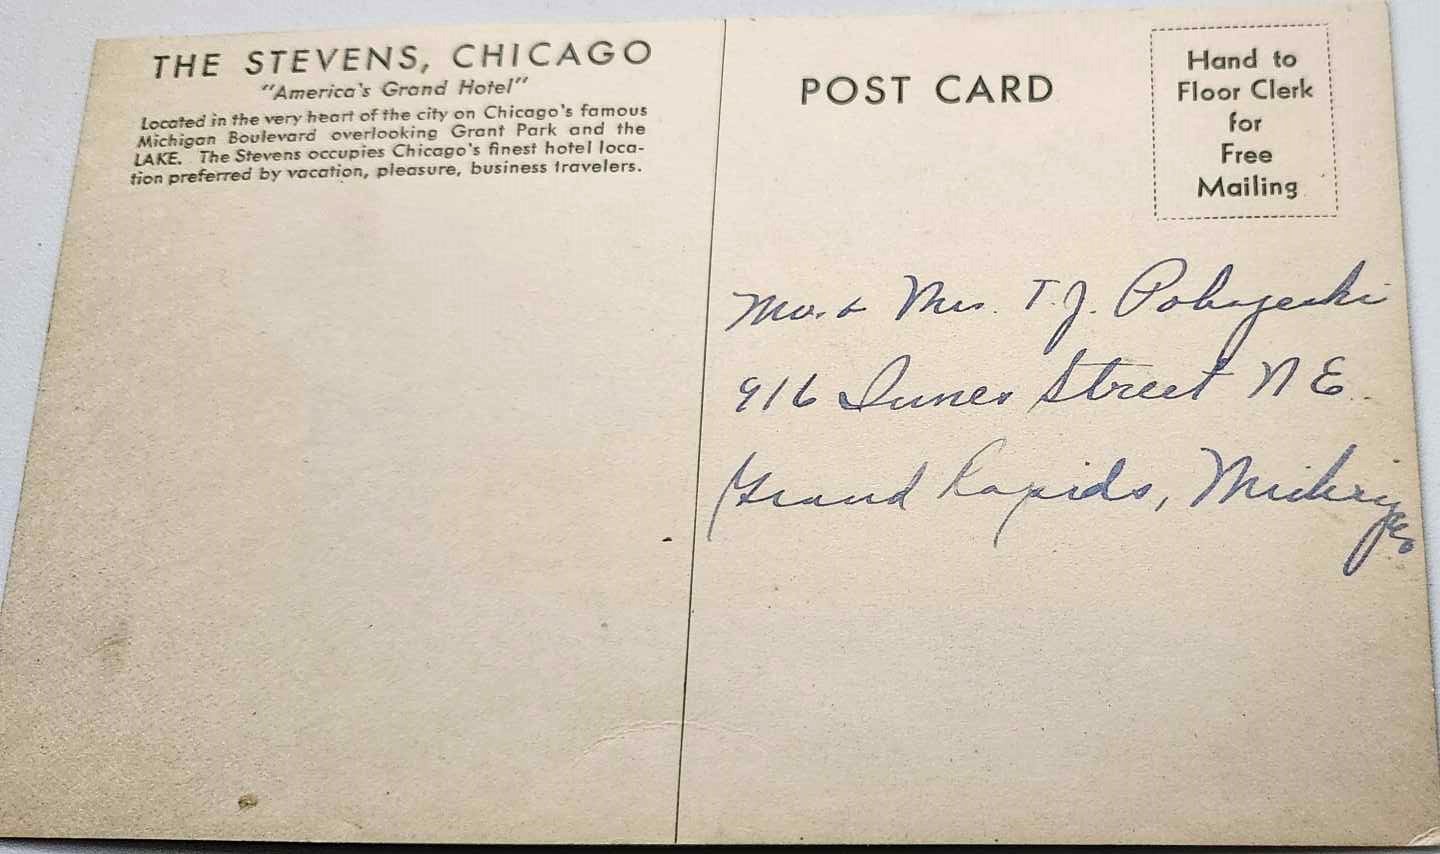 THE STEVENS, CHICAGO
"America's Grand Hotel"
Located in the very heart of the city on Chicago's famous
Michigan Boulevard overlooking Grant Park and the
LAKE. The Stevens occupies Chicago's finest hotel loca-
tion preferred by vacation, pleasure, business travelers.
POST CARD
Hand to
Floor Clerk
for
Free
Mailing
Mr. & Mrs. T. J.
916 Street N E
Grand Rapids, Michigan